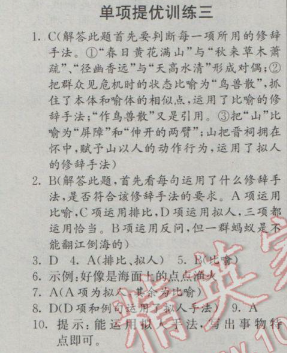 单项提优训练三
1. C(解答此题首先要判断每一项所用的修辞
手法。①“春日黄花满山”与“秋来草木萧
疏”、“径幽香远”与“天高水清”形成对偶;②
把群众见危机时的状态比喻为“鸟兽散”,抓
住了本体和喻体的相似点,运用了比喻的修
辞手法;“作鸟兽散”又是引用。③把“山”比
喻为“屏障”和“伸开的两臂”;山把晋祠拥在
怀中,赋予山以人的动作行为,运用了拟人
的修辞手法)
2. B(解答此题,首先看每句运用了什么修辞手
法,是否符合该修辞手法的要求。A项运用
比喻,C项运用排比,D项运用拟人,三项都
运用恰当。B项运用反问,但一群蚂蚁是不
能翻江倒海的)
3. D 4. A(排比、拟人) 5. B(比喻)
6. 示例:好像是海面上的点点渔火
7. A(A项为拟人,其余为比喻)
8. D(D项和例句运用了拟人手法) 9. A
10. 提示:能运用拟人手法,写出事物特
点即可。
精英家